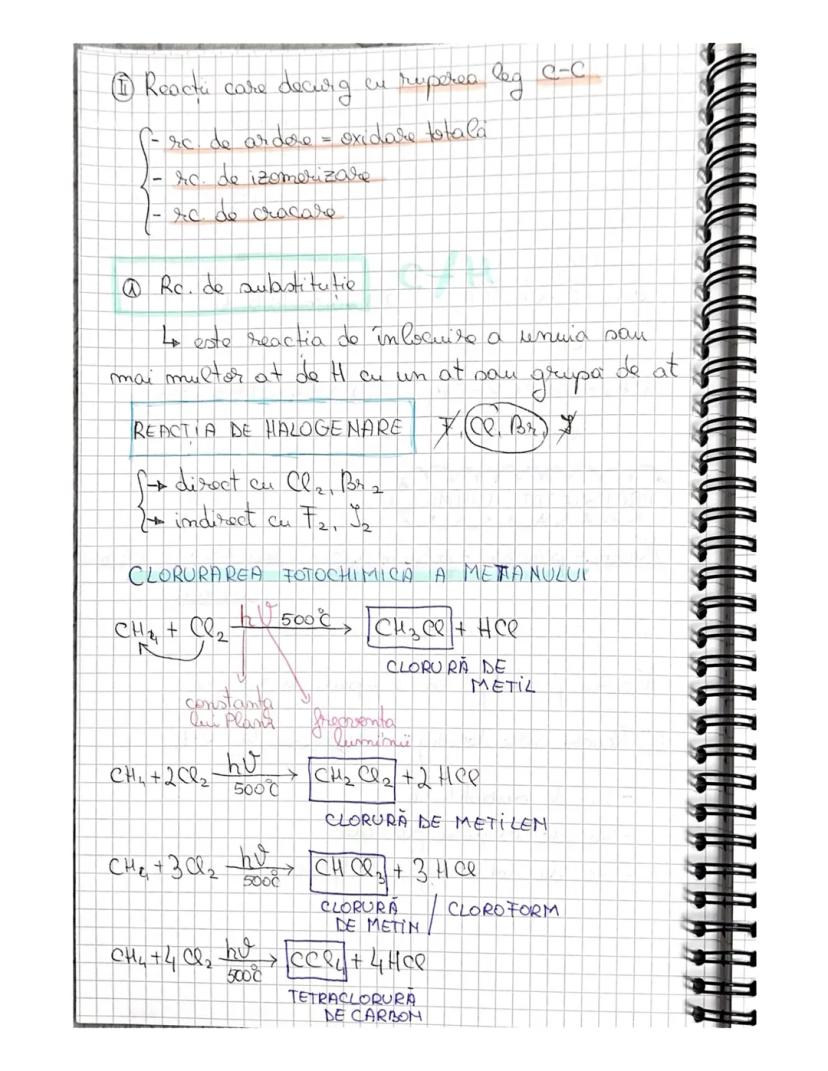 II Reacții care decurg cu ruperea leg C-C
- rc. de ardere = oxidare totală
- rc. de izomerizare
- rc. de cracare
① Rc. de substituție C/H
↳ este reacția de înlocuire a unuia sau
mai multor at de H cu un at sau grupă de at
REACȚIA DE HALOGENARE F, Cl, Br, I
→ direct cu Cl₂, Br₂
→ indirect cu F₂, I₂
CLORURAREA FOTOCHIMICĂ A METANULUI
CH₄ + Cl₂ hν 500°C → CH₃Cl + HCl
CLORURĂ DE
METIL
constanta
lui Plank
frecventa
luminii
CH₄ + 2Cl₂ hν 500°C → CH₂Cl₂ + 2HCl
CLORURĂ DE METILEN
CH₄ + 3Cl₂ hν 500°C → CHCl₃ + 3HCl
CLORURĂ / CLOROFORM
DE METIN
CH₄ + 4Cl₂ hν 500°C → CCl₄ + 4HCl
TETRACLORURĂ
DE CARBON